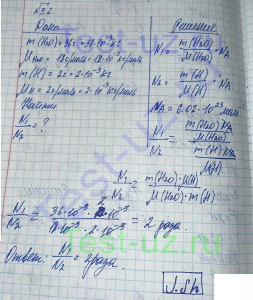 №2
Дано
m(H2O)=36г=36·10⁻³кг
MH2O=18г/моль=18·10⁻³кг/моль
m(H)=2г=2·10⁻³кг
MH=2г/моль=2·10⁻³кг/моль
Найти
N1/N2=?
Решение
N1=m(H2O)/M(H2O)·NA
N2=m(H)/M(H)·NA
NA=6.02·10²³моль⁻¹
N1/N2=m(H2O)NA/M(H2O)/m(H)NA/M(H)
N1/N2=m(H2O)·M(H)/M(H2O)·m(H)
N1/N2=36·10⁻³·2·10⁻³/18·10⁻³·2·10⁻³=2 раза
Ответ: N1/N2=2раза.
Test-uz.ru